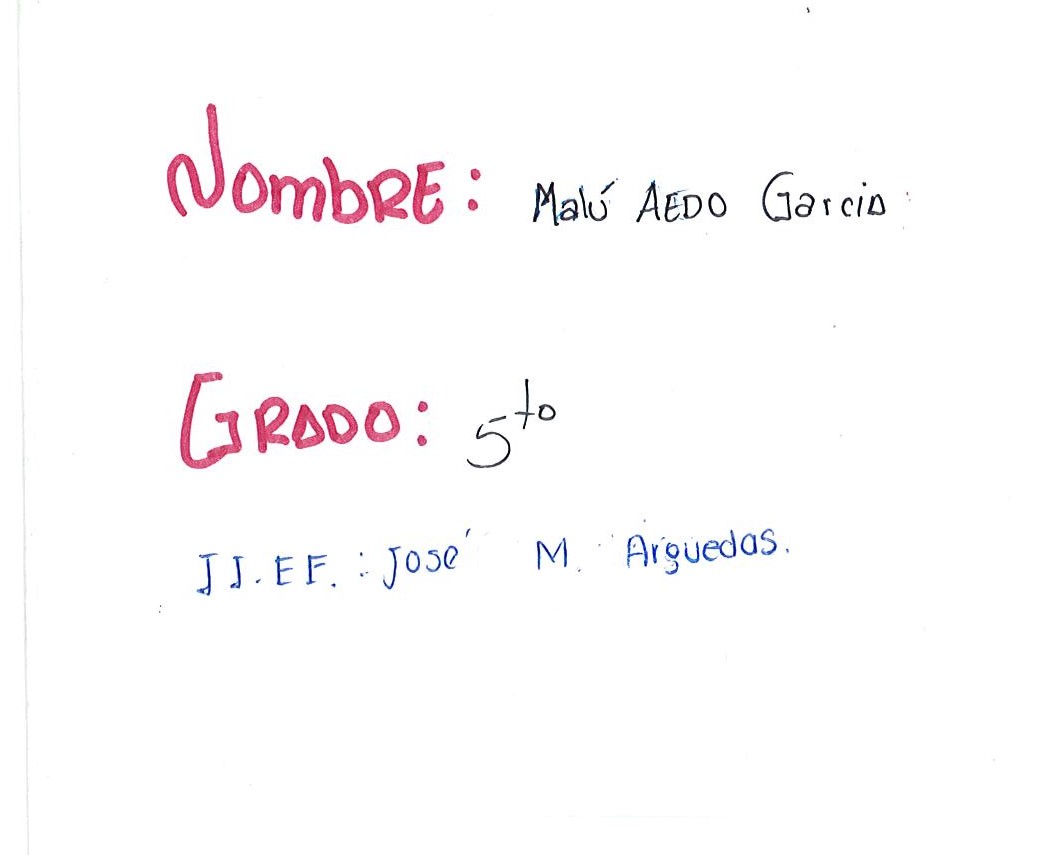 NombRE: Malú AEDO Garcia
GRADO: 5to
JJ.EF.: José M. Arguedas.